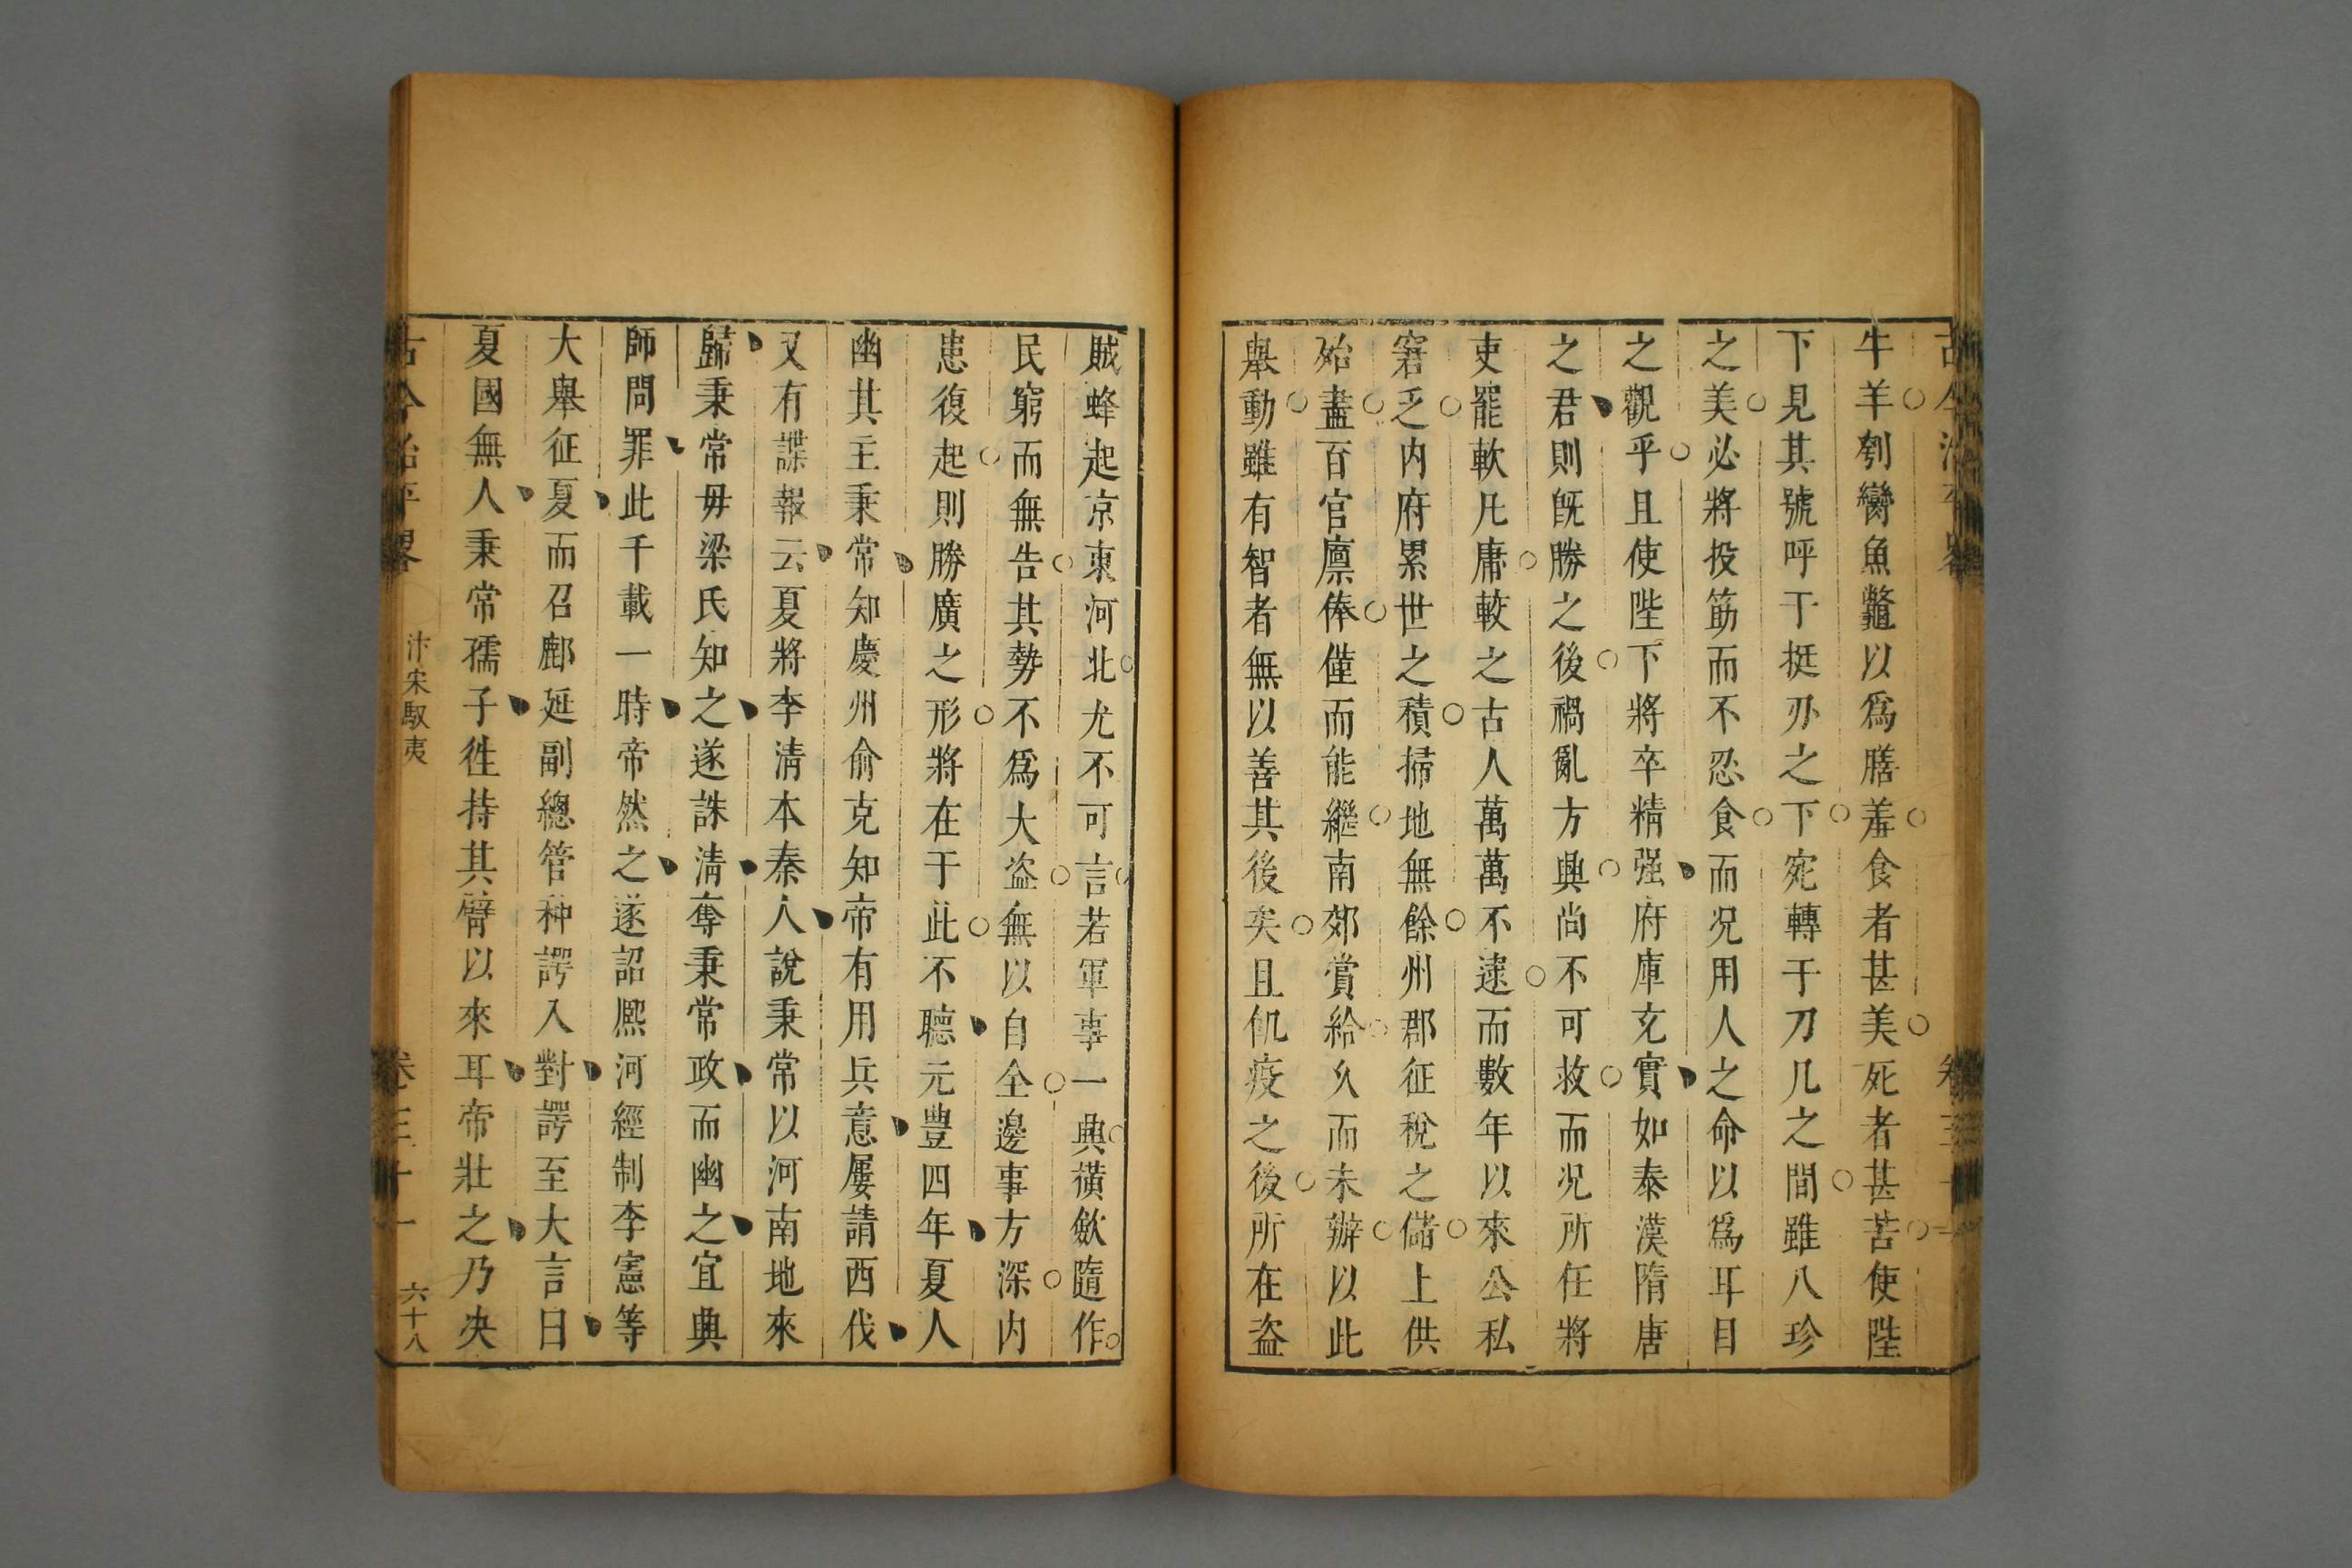 牛羊刳臠魚鼈以爲膳羞食者甚美死者甚苦使陛
下見其號呼于挺刃之下宛轉于刀几之間雖八珍
之美必將投筯而不忍食而况用人之命以爲耳目
之觀乎且使陛下將卒精强府庫充實如秦漢隋唐
之君則旣勝之後禍亂方興尚不可救而况所任將
吏罷軟凡庸較之古人萬萬不逮而數年以來公私
窘乏内府累世之積掃地無餘州郡征稅之儲上供
殆盡百官廪俸僅而能繼南郊賞給乆而未辦以此
舉動雖有智者無以善其後矣且飢疫之後所在盗
賊蜂起京東河北尤不可言若軍事一興橫斂隨作
民窮而無告其勢不爲大盗無以自全邊事方深内
患復起則勝廣之形將在于此不聽元豊四年夏人
幽其主秉常知慶州俞克知帝有用兵意屢請西伐
又有諜報云夏將李淸本秦人說秉常以河南地來
歸秉常母梁氏知之遂誅淸奪秉常政而幽之宜興
師問罪此千載一時帝然之遂詔熈河經制李憲等
大舉征夏而召鄜延副總管种諤入對諤至大言曰
夏國無人秉常孺子徃持其臂以來耳帝壯之乃决
古今治平畧 汴宋馭夷 卷三十一 六十八